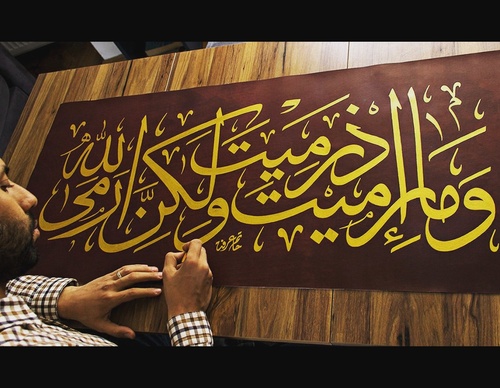 وَمَا رَمَيْتَ إِذْ رَمَيْتَ وَلَكِنَّ اللهَ رَمَى